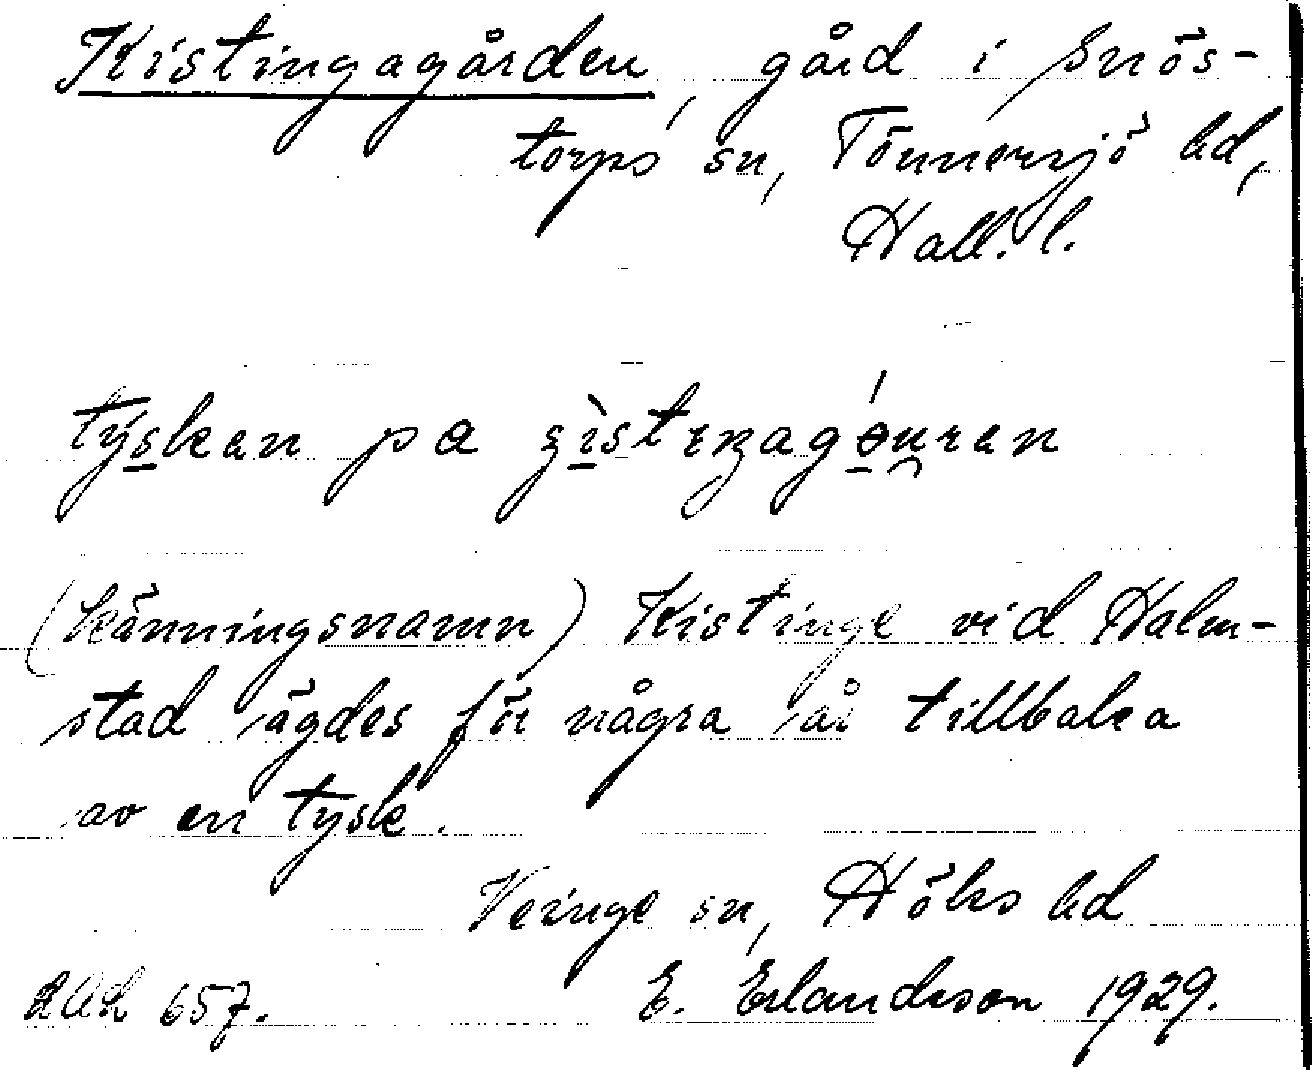 Kistingagården, gård i Snös-
torps sn, Tönnersjö hd,
Hall. l.
tysken pa
(känningsnamn) Kistinge vid Halm-
stad ägdes för några år tillbaka
av en tysk.
Veinge sn, Höks hd
657. E. Erlandsson 1929.